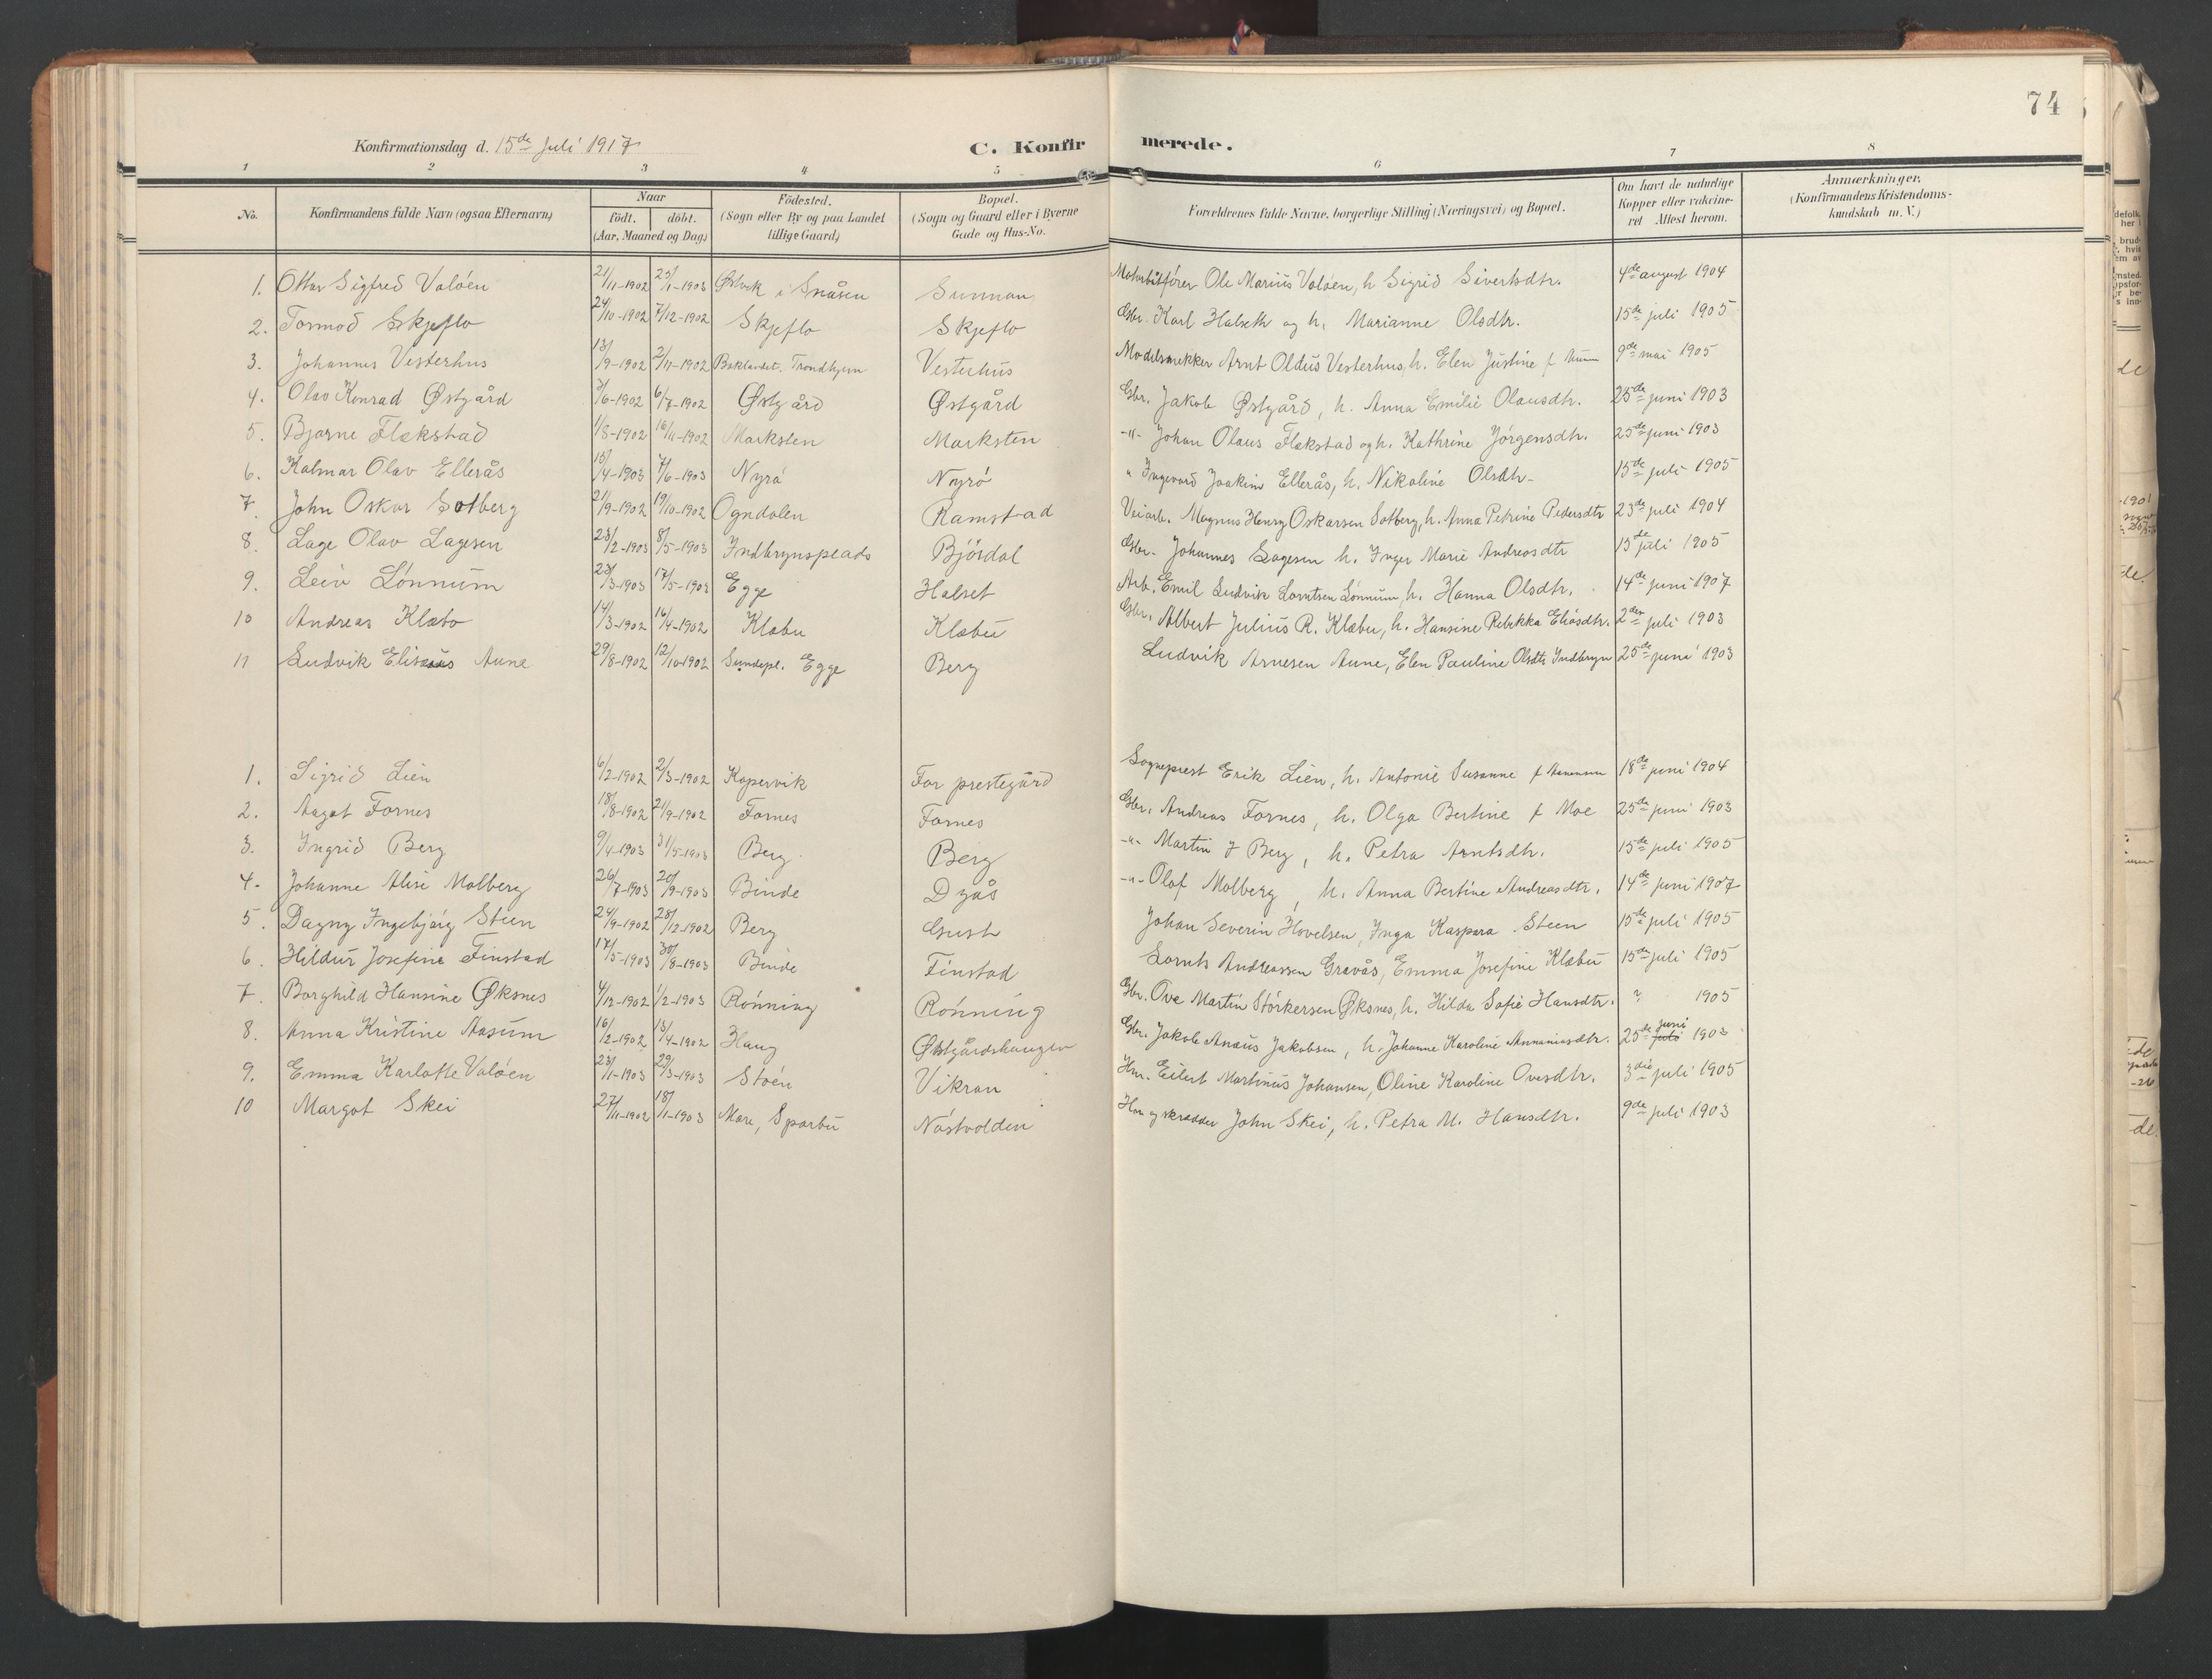 74
Konfirmationsdag d. 15de Juli 1917
C. Konfirmerede.
1 2 3 4 5 6 7 8
No.
Konfirmandens fulde Navn (ogsaa Efternavn)
Naar
födt. döbt.
(Aar, Maaned og Dag)
Födested.
(Sogn eller By og paa Landet
tillige Gaard)
Bopæl.
(Sogn og Gaard eller i Byerne
Gade og Hus-No.
Forældrenes fulde Navne, borgerlige Stilling (Næringsvei) og Bopæl.
Om havt de naturlige
Kopper eller vakcine-
ret Attest herom.
Anmærkninger.
(Konfirmandens Kristendoms-
kundskab m. V.)
1. Sigfred Valöen 21/11-1902 25/1-1903 i Snåsen Sunnan Ole Marius Valöen, h Sigrid Sivertsdtr. 4de august 1904
2. Tormod Skjeflo 24/10-1902 7/12-1902 Skjeflo Skjeflo Gbr. Karl Halseth og h. Marianne Olsdtr. 15de juli 1905
3. Johannes Vesterhus 13/9-1902 2/11-1902 Baklandet, Trondhjem Vesterhus Modelsnekker Arnt Oldus Vesterhus, h. Elen Justine f 9de mai 1905
4. Olav Konrad Østgård 3/6-1902 6/7-1902 Østgård Østgård Gbr. Jakob Østgård, h. Anna Emilie Olausdtr. 25de juni 1903
5. Bjarne Flekstad 1/8-1902 16/11-1902 Marksten Marksten -"- Johan Olaus Flekstad og h. Kathrine Jörgensdtr. 25de juni 1903
6. Kalmar Olav Ellerås 13/4-1903 7/6-1903 Nyrö Nyrö " Ingevard Joakim Ellerås, h. Nikoline Olsdtr- 15de juli 1905
7. John Oskar Sotberg 21/9-1902 19/10-1902 Ogndalen Ramstad Veiarb. Magnus Henry Oskarsen Sotberg, h. Anna Petrine Pedersdtr 23de juli 1904
8. Lage Olav Lagesen 23/2-1903 8/5-1903 Indbrynsplads Björdal Gbr. Johannes Lagesen h. Inger Marie Andreasdtr 15de juli 1905
9. Leiv Lönnum 23/3-1903 17/5-1903 Egge Halset Arb. Emil Ludvik Lorntsen Lönnum, h. Hanna Olsdtr. 14de juni 1907
10 Andreas Klæbo 14/3-1902 16/4-1902 Klæbu Klæbu Gbr. Albert Julius R. Klæbu, h. Hansine Rebekka Eliasdtr. 2den juli 1903
11 Ludvik Elisæus Aune 29/8-1902 12/10-1902 Sundepl. Egge Berg Ludvik Arnesen Aune, Elen Pauline Olsdtr Indbryn 25de juni 1903
1. Sigrid Lien 6/2-1902 2/3-1902 Kopervik For prestegård Sogneprest Erik Lien, h. Antonie Susanne f 18de juni 1904
2. Aagot Fornes 18/8-1902 21/9-1902 Fornes Fornes Gbr. Andreas Fornes, h. Olga Bertine f Moe 25de juni 1903
3. Ingrid Berg 9/4-1903 31/5-1903 Berg Berg -"- Martin J Berg, h. Petra Arntsdtr. 15de juli 1905
4. Johanne Alise Molberg 26/7-1903 20/9-1903 Binde Dyås -"- Olaf Molberg, h. Anna Bertine Andreasdtr. 14de juni 1907
5. Dagny Ingebjörg Steen 24/9-1902 28/12-1902 Berg Gusth Johan Severin Hovelsen, Inga Kaspara Steen 15de juli 1905
6. Hildur Josefine Finstad 17/5-1903 30/8-1903 Binde Finstad Lornts Andreassen Gravås, Emma Josefine Klæbu 15de juli 1905
7. Borghild Hansine Øksnes 4/12-1902 1/2-1903 Rönning Rönning Gbr. Ove Martin Störkersen Øksnes, h. Hilda Sofie Hansdtr. ? 1905
8. Anna Kristine Aasum 16/2-1902 13/4-1902 Haug Østgårdshaugen Gbr. Jakob Anæus Jakobsen, h. Johanne Karoline Annaniasdtr. 25de juni 1903
9. Emma Karlotte Valöen 23/1-1903 29/3-1903 Stöen Vikran Hm. Eilert Martinus Johansen, Oline Karoline Ovesdtr. 3die juli 1905
10 Margot Skei 27/11-1902 18/1-1903 Mære, Sparbu Nöstvolden Hm og skrædder John Skei, h. Petra M. Hansdtr. 9de juli 1903